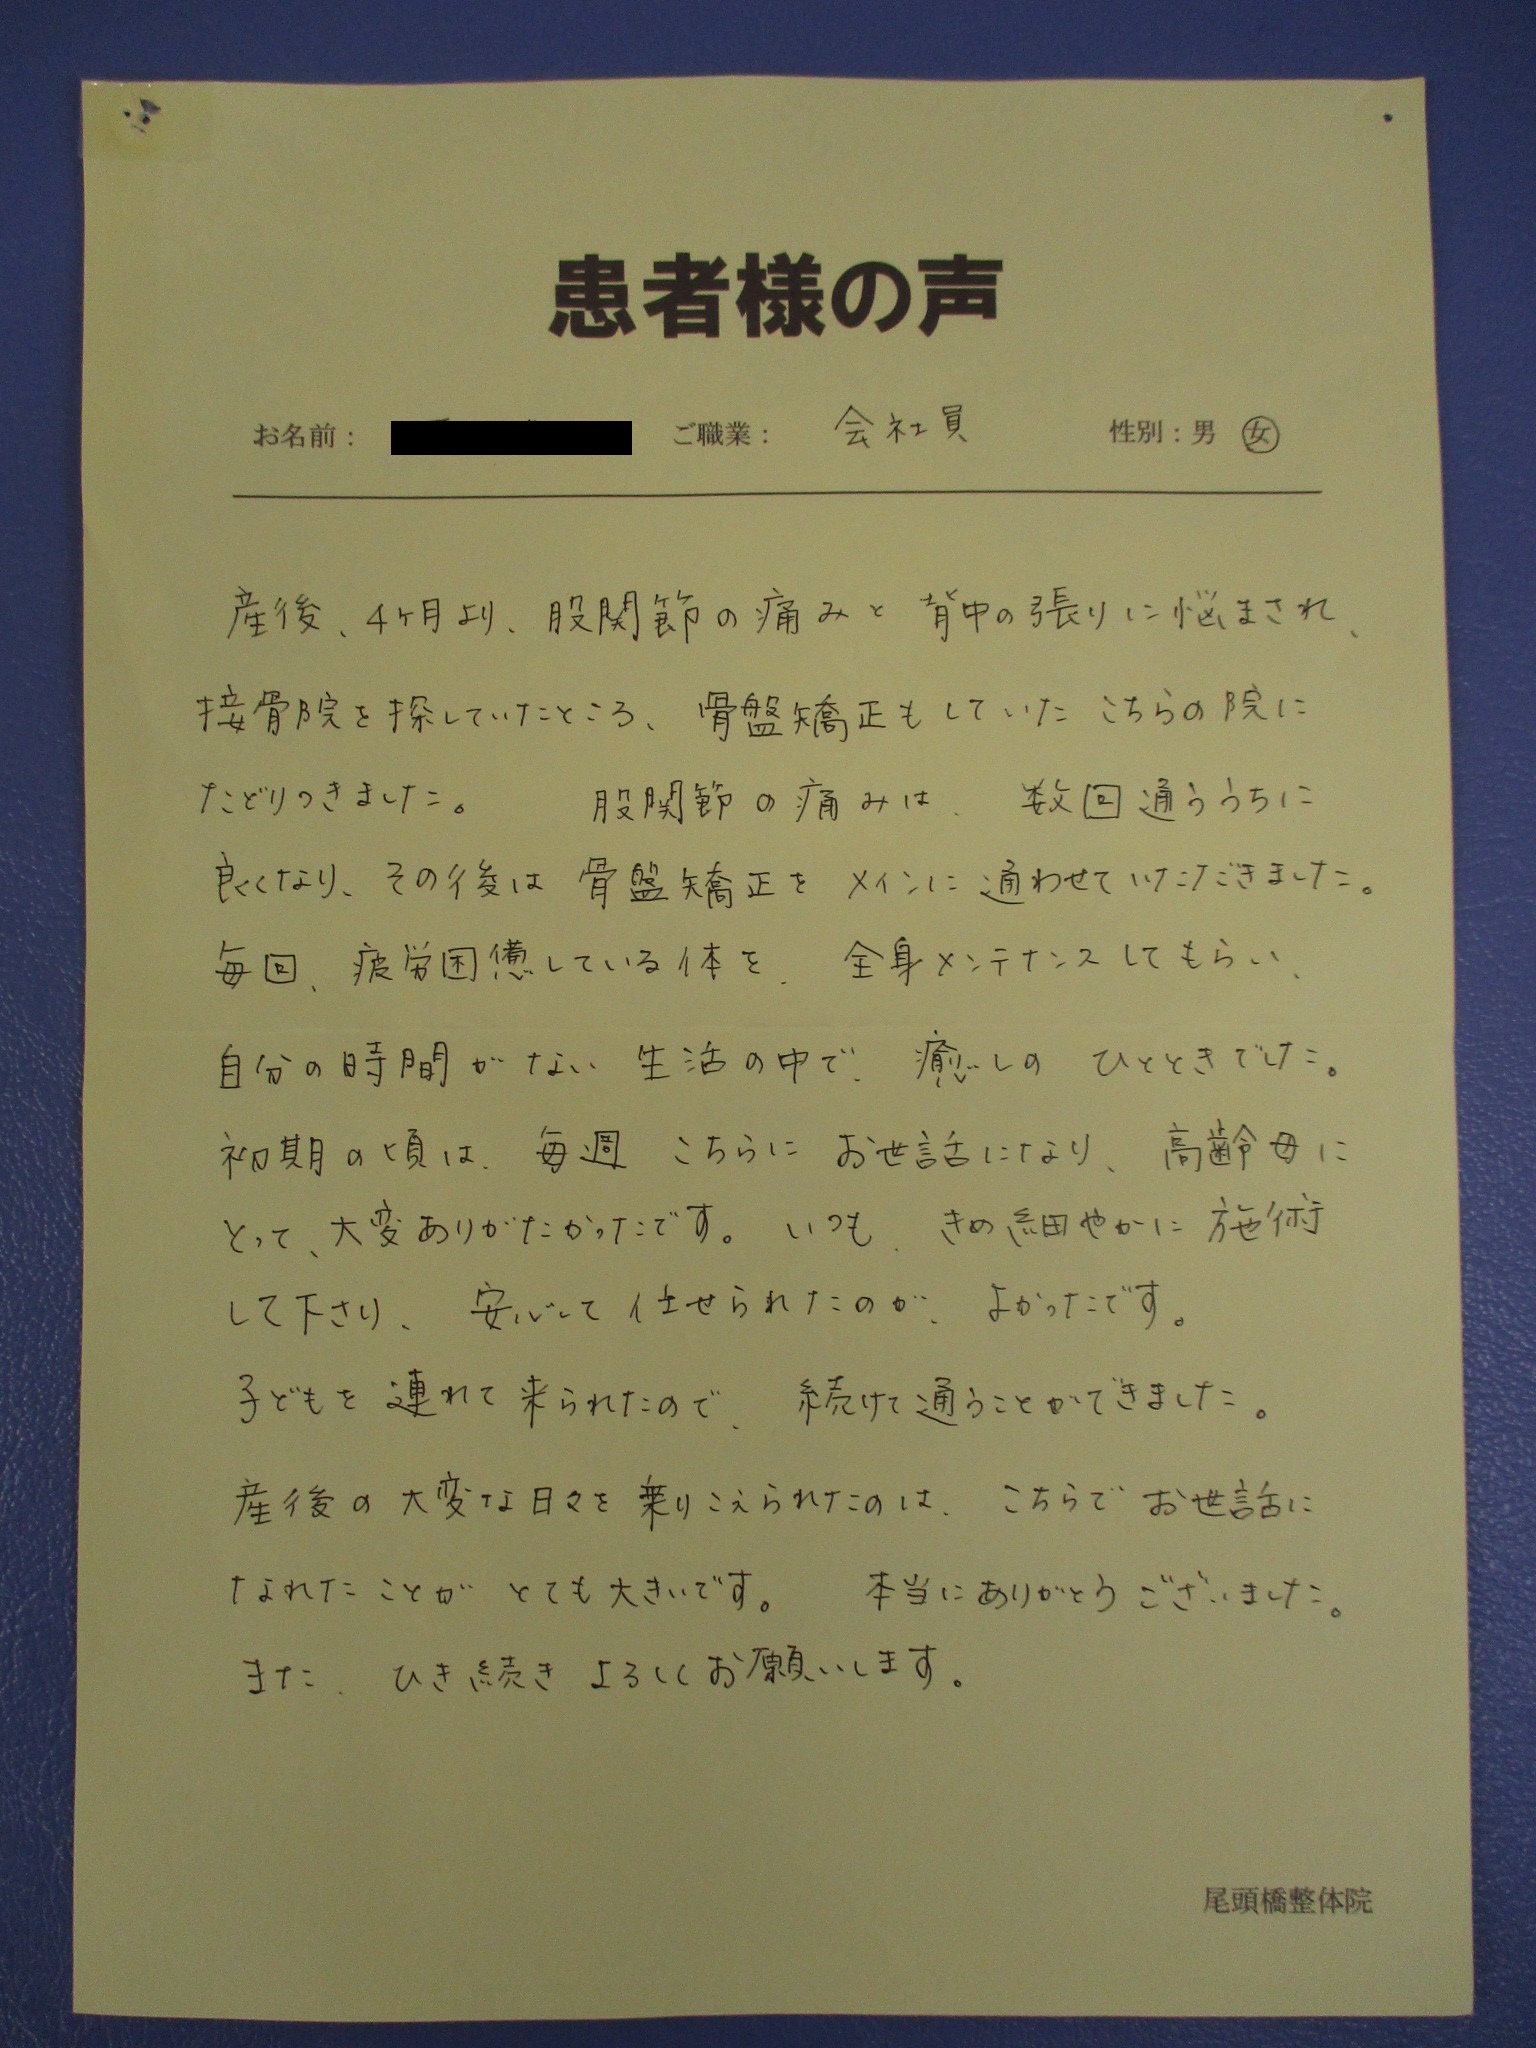 患者様の声
お名前： ご職業： 会社員 性別：男 女
産後、4ヶ月より、股関節の痛みと背中の張りに悩まされ、
接骨院を探していたところ、骨盤矯正もしていたこちらの院に
たどりつきました。 股関節の痛みは、数回通ううちに
良くなり、その後は骨盤矯正をメインに通わせていただきました。
毎回、疲労困憊している体を、全身メンテナンスしてもらい、
自分の時間がない生活の中で、癒しのひとときでした。
初期の頃は、毎週こちらにお世話になり、高齢母に
とって、大変ありがたかったです。いつも、きめ細やかに施術
して下さり、安心して任せられたのが、よかったです。
子どもを連れて来られたので、続けて通うことができました。
産後の大変な日々を乗りこえられたのは、こちらでお世話に
なれたことがとても大きいです。 本当にありがとうございました。
また、ひき続きよろしくお願いします。
尾頭橋整体院